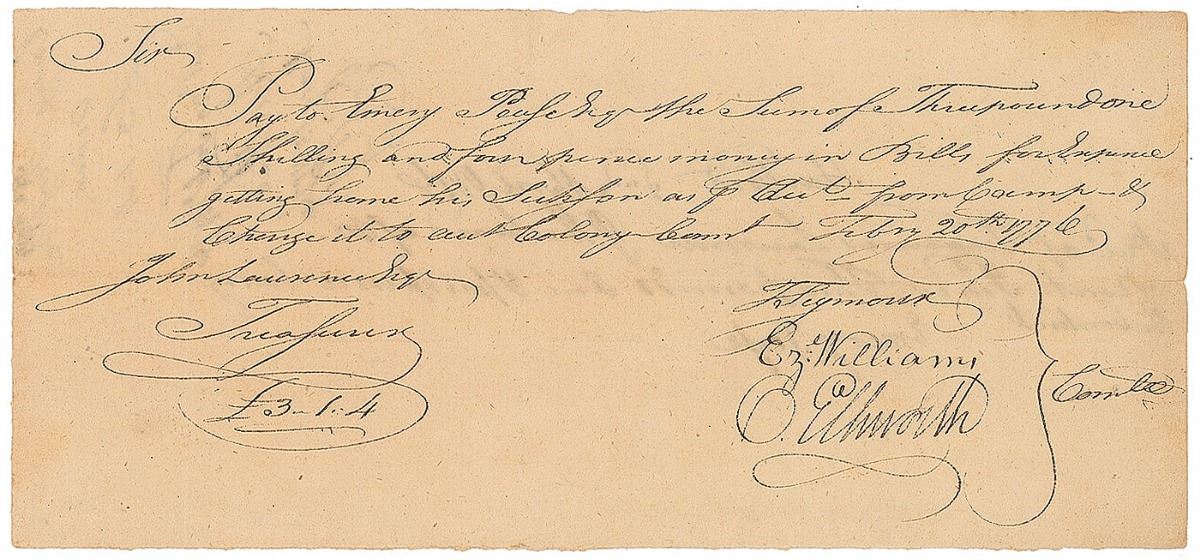 Sir
Pay to Emery Pease Esqr the Sum of Three pound one
Shilling and four pence money in Bills for Expence
getting home his Sick son as pr Acct from Camp - &
Charge it to
Colony
Febry 20th 1776
John Lawrence Esqr
Treasurer
£3-1-4
T. Seymour
Ez: Williams
O. Ellsworth
Comtee